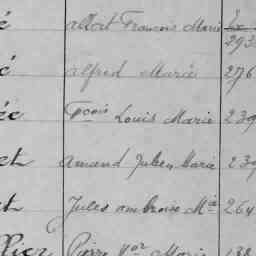 é albert François Marie 293
é alfred Marie 276
ée Fçois Louis Marie 239
et Amand Julien Marie 239
et Jules ambroise Mie 264
llier Pierre Marie 138